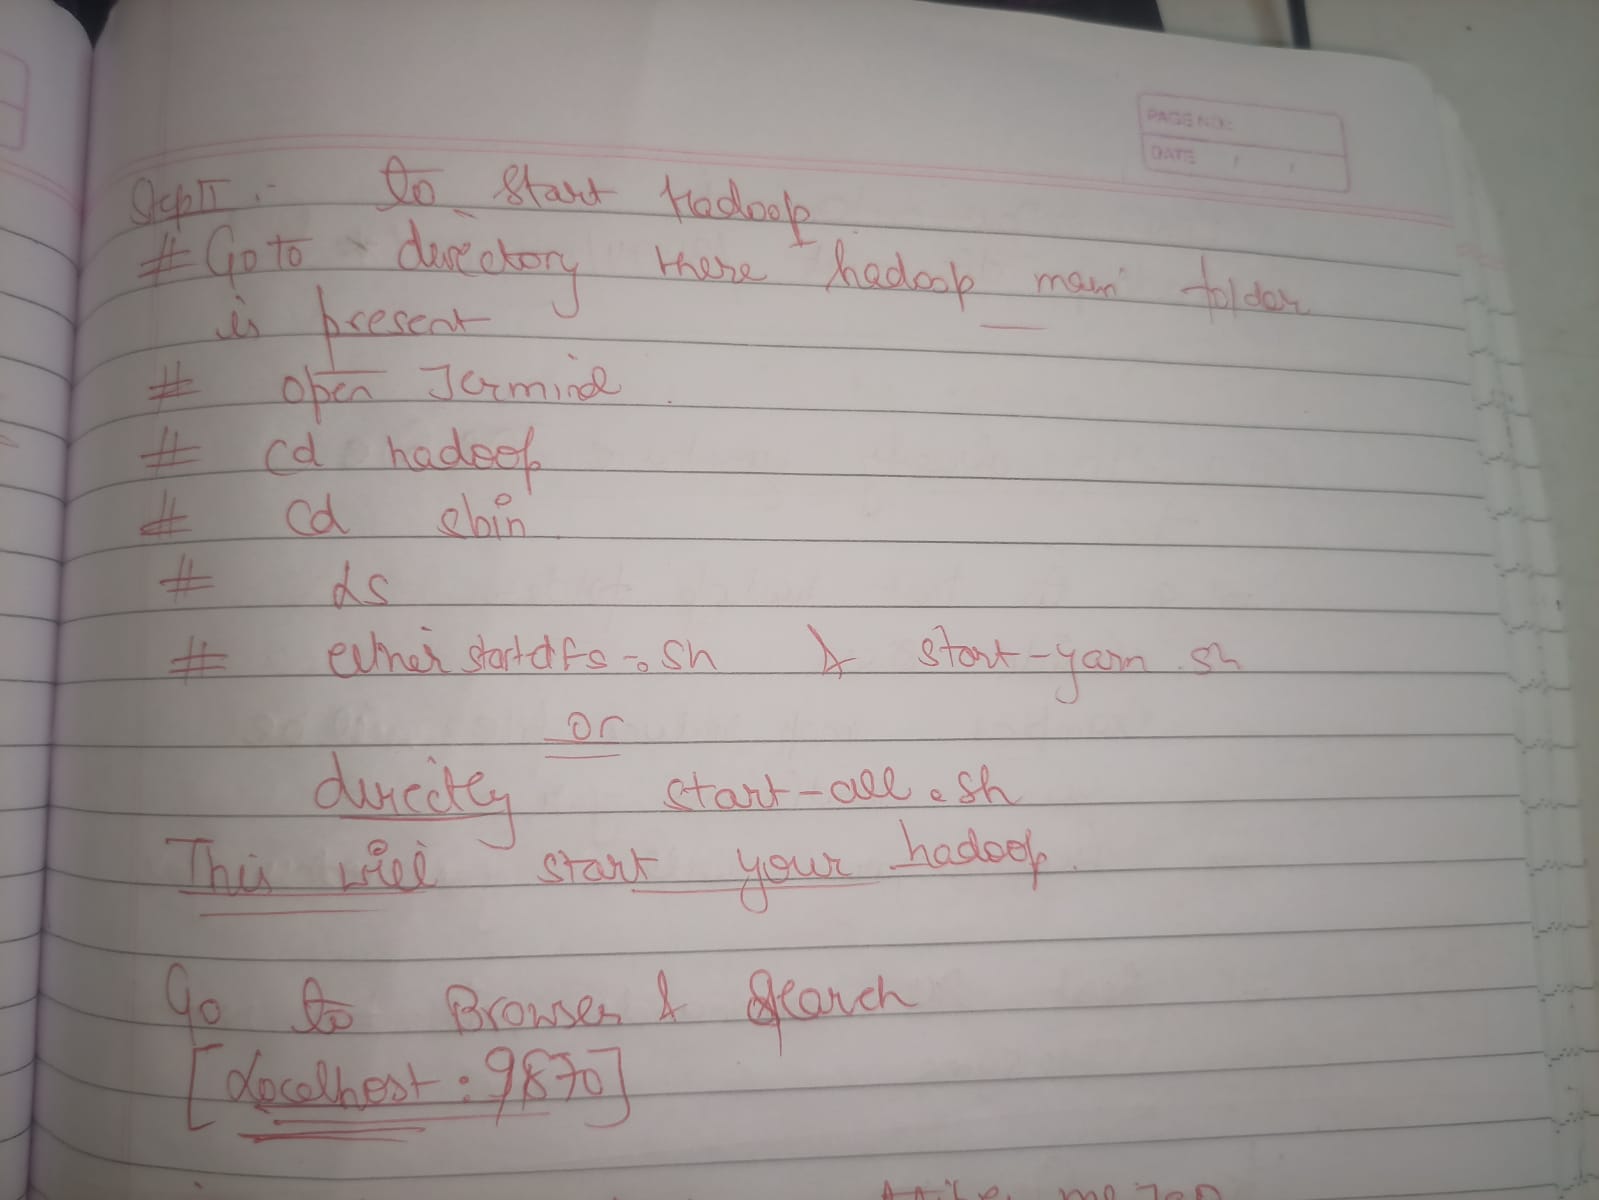 PAGE NO.:
DATE / /
Step II :- to start hadoop
# Go to directory where hadoop main folder
is present
# open Terminal.
# cd hadoop
# cd sbin
# Ls
# either start dfs-.sh & start-yarn.sh
or
directly start-all.sh
This will start your hadoop.
Go to Browser & Search
[Localhost:9870]